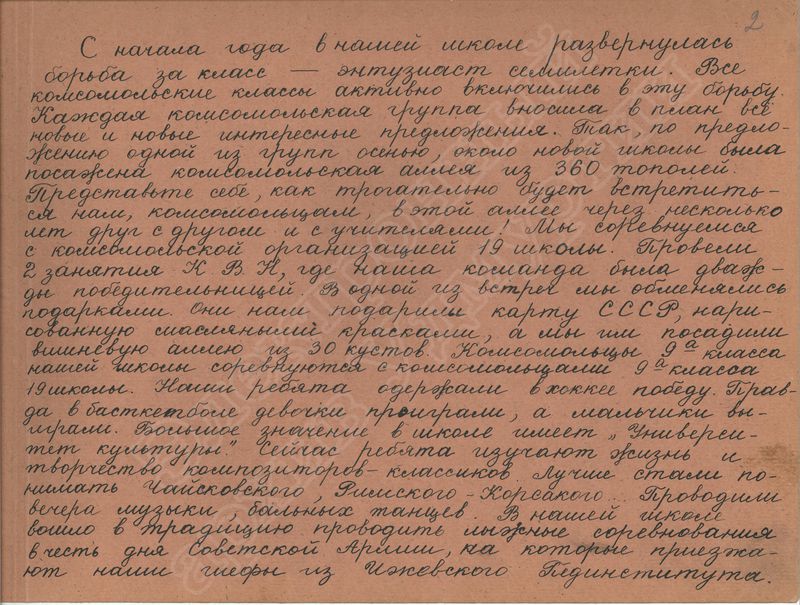 2
С начала года в нашей школе развернулась
борьба за класс — энтузиаст семилетки. Все
комсомольские классы активно включились в эту борьбу.
Каждая комсомольская группа вносила в план всё
новые и новые интересные предложения. Так, по предло-
жению одной из групп осенью, около новой школы была
посажена комсомольская аллея из 360 тополей.
Представьте себе, как трогательно будет встретить-
ся нам, комсомольцам, в этой аллее через несколько
лет друг с другом и с учителями! Мы соревнуемся
с комсомольской организацией 19 школы. Провели
2 занятия К. В. Н, где наша команда была дваж-
ды победительницей. В одной из встреч мы обменялись
подарками. Они нам подарили карту СССР, нари-
сованную масляными красками, а мы им посадили
вишнёвую аллею из 30 кустов. Комсомольцы 9а класса
нашей школы соревнуются с комсомольцами 9а класса
19 школы. Наши ребята одержали в хоккее победу. Прав-
да в басткетболе девочки проиграли, а мальчики вы-
играли. Большое значение в школе имеет „Универси-
тет культуры". Сейчас ребята изучают жизнь и
творчество композиторов-классиков. Лучше стали по-
нимать Чайсковского, Римского-Корсакого... Проводили
вечера музыки, бальных танцев. В нашей школе
вошло в традицию проводить лыжные соревнования
в честь дня Советской Армии, на которые приезжа-
ют наши шефы из Ижевского Пединститута.